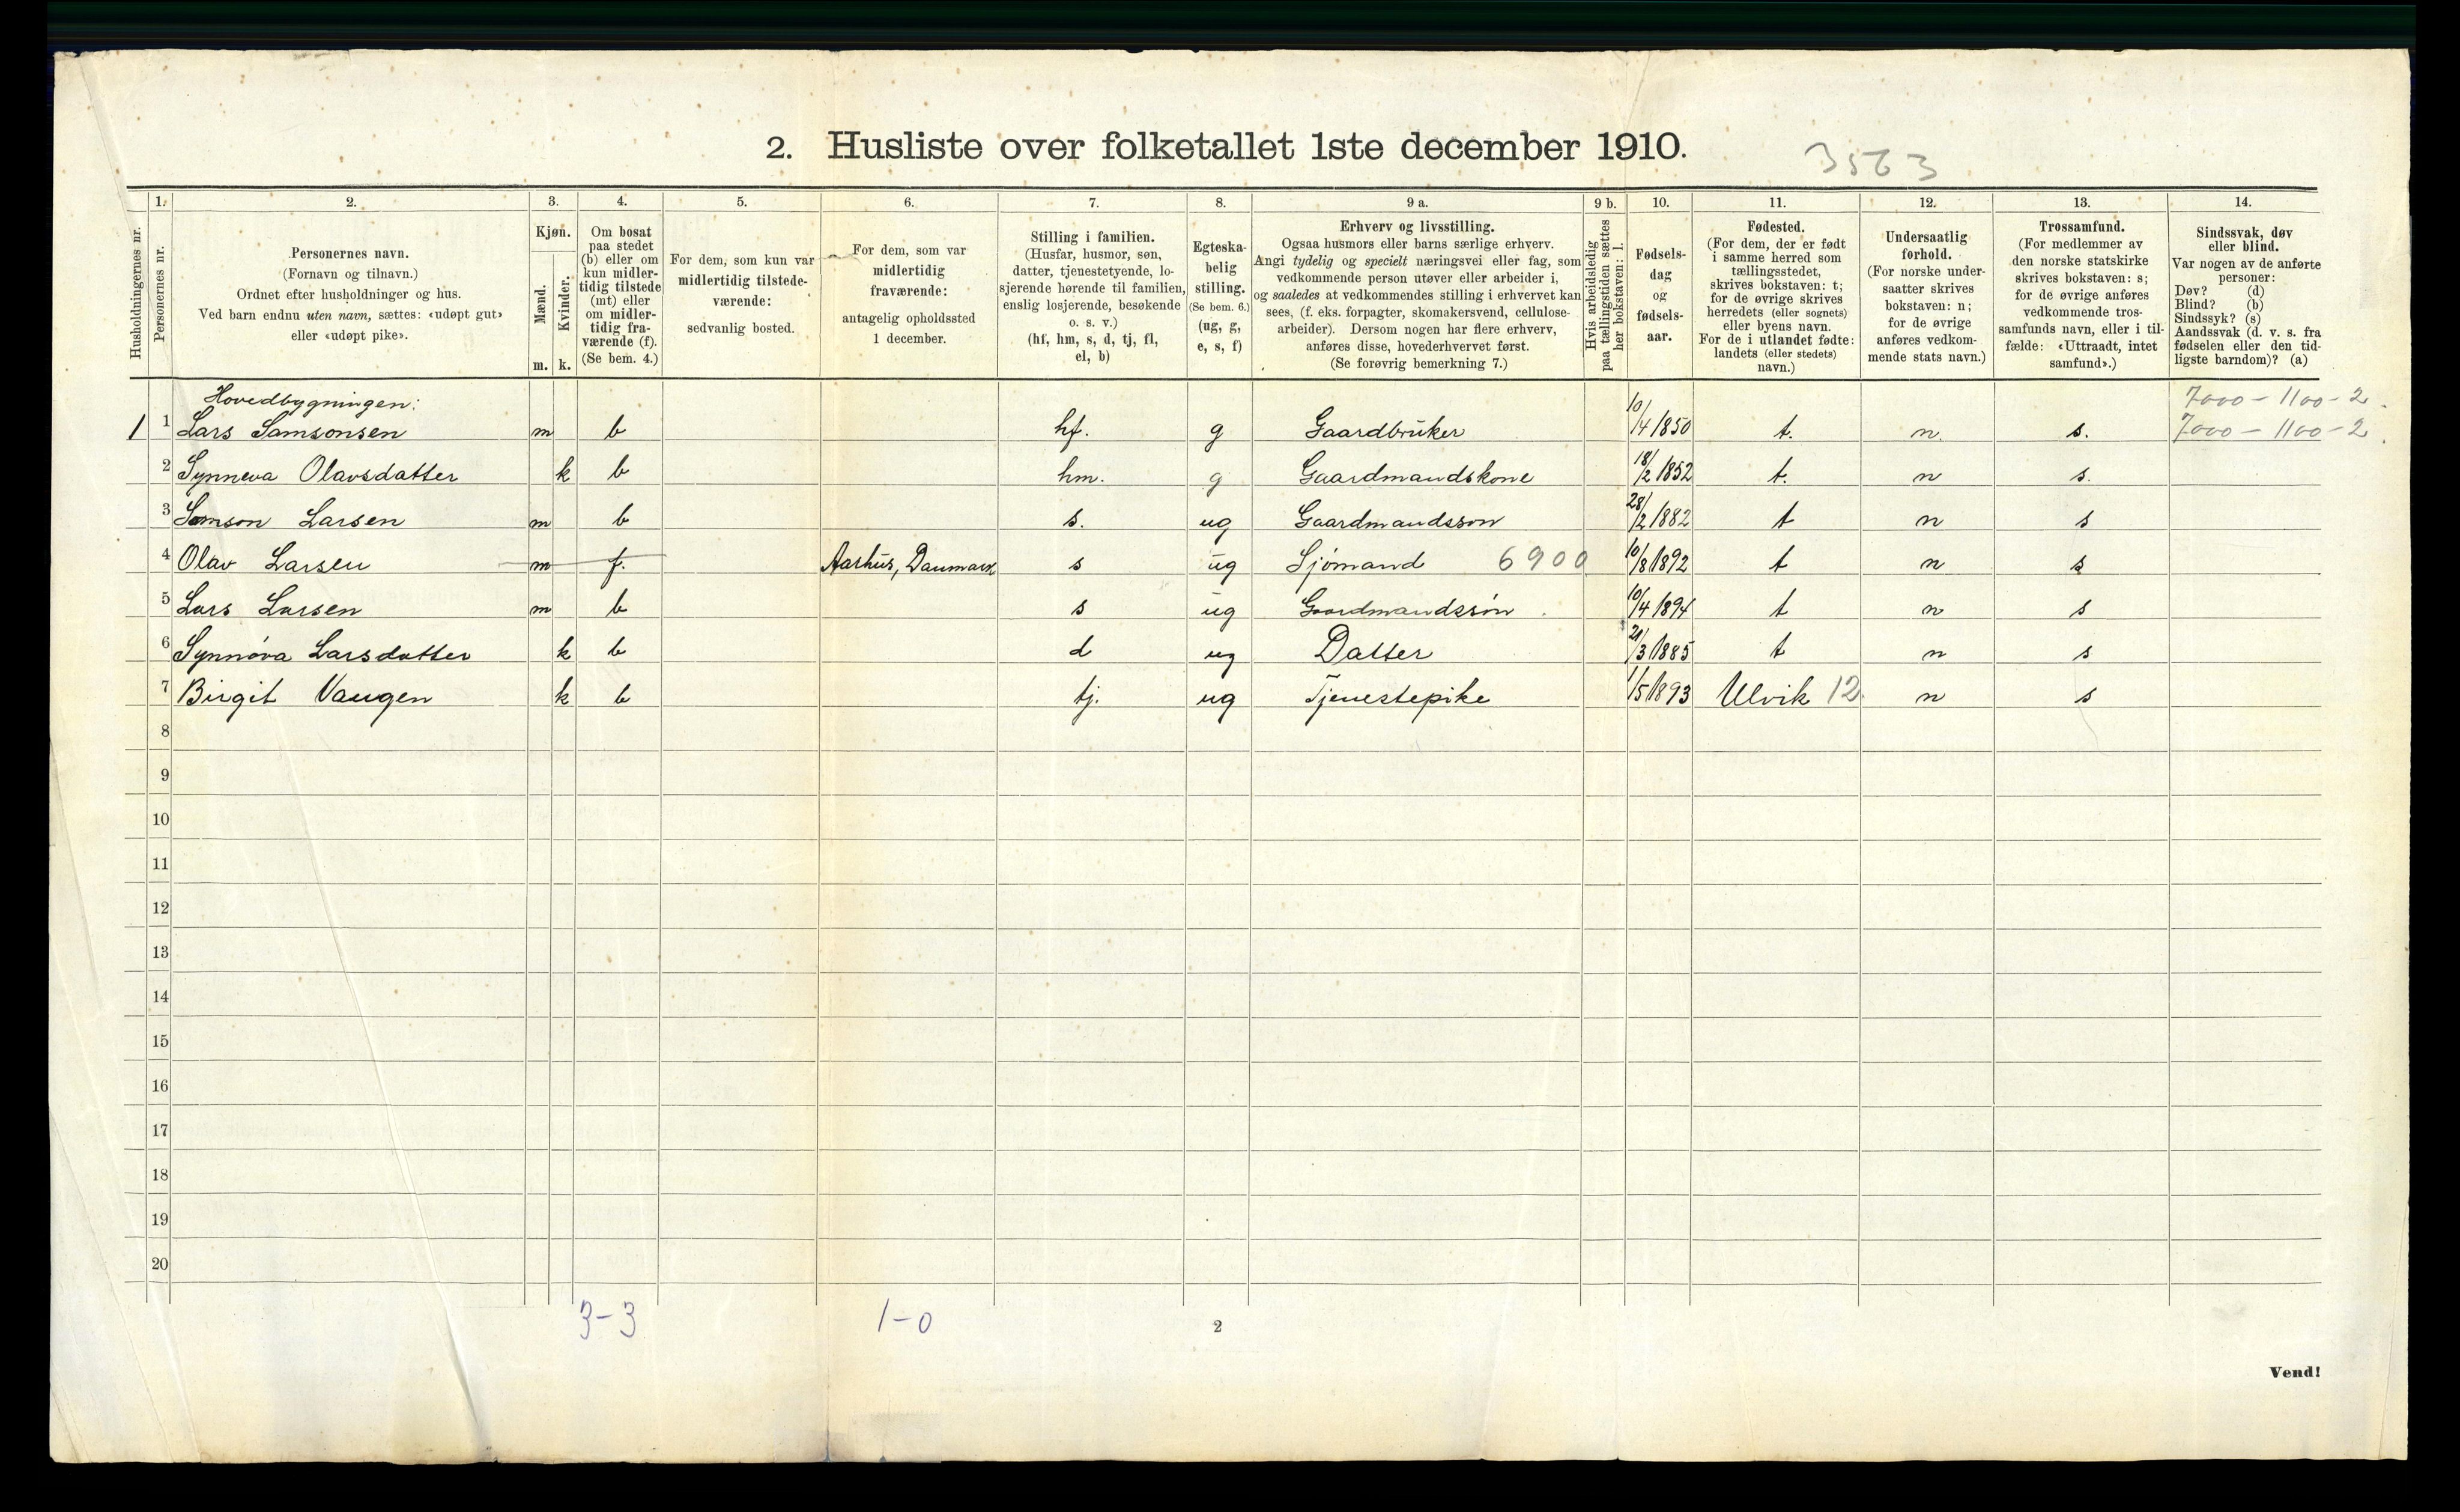 2. Husliste over folketallet 1ste december 1910.
3563
Husholdningernes nr.
1.
Personernes nr.
2.
Personernes navn.
(Fornavn og tilnavn.)
Ordnet efter husholdninger og hus.
Ved barn endnu uten navn, sættes: «udøpt gut»
eller «udøpt pike».
3.
Kjøn.
Mænd.
Kvinder.
m. k.
4.
Om bosat
paa stedet
(b) eller om
kun midler-
tidig tilstede
(mt) eller
om midler-
tidig fra-
værende (f).
(Se bem. 4.)
5.
For dem, som kun var
midlertidig tilstede-
værende:
sedvanlig bosted.
6.
For dem, som var
midlertidig
fraværende:
antagelig opholdssted
1 december.
7.
Stilling i familien.
(Husfar, husmor, søn,
datter, tjenestetyende, lo-
sjerende hørende til familien,
enslig losjerende, besøkende
o. s. v.)
(hf, hm, s, d, tj, fl,
el, b)
8.
Egteska-
belig
stilling.
(Se bem. 6.)
(ug, g,
e, s, f)
9 a.
Erhverv og livsstilling.
Ogsaa husmors eller barns særlige erhverv.
Angi tydelig og specielt næringsvei eller fag, som
vedkommende person utøver eller arbeider i,
og saaledes at vedkommendes stilling i erhvervet kan
sees, (f. eks. forpagter, skomakersvend, cellulose-
arbeider). Dersom nogen har flere erhverv,
anføres disse, hovederhvervet først.
(Se forøvrig bemerkning 7.)
9 b.
Hvis arbeidsledig
paa tællingstiden sættes
her bokstaven: l.
10.
Fødsels-
dag
og
fødsels-
aar.
11.
Fødested.
(For dem, der er født
i samme herred som
tællingsstedet,
skrives bokstaven: t;
for de øvrige skrives
herredets (eller sognets)
eller byens navn.
For de i utlandet fødte:
landets (eller stedets)
navn.)
12.
Undersaatlig
forhold.
(For norske under-
saatter skrives
bokstaven: n;
for de øvrige
anføres vedkom-
mende stats navn.)
13.
Trossamfund.
(For medlemmer av
den norske statskirke
skrives bokstaven: s;
for de øvrige anføres
vedkommende tros-
samfunds navn, eller i til-
fælde: «Uttraadt, intet
samfund».)
14.
Sindssvak, døv
eller blind.
Var nogen av de anførte
personer:
Døv? (d)
Blind? (b)
Sindssyk? (s)
Aandssvak (d. v. s. fra
fødselen eller den tid-
ligste barndom)? (a)
Hovedbygningen: 7000 - 1100 - 2
1 1 Lars Samsonsen m b hf. g Gaardbruker 10/4 1850 t. n. s. 7000 - 1100 - 2
2 Synneva Olavsdatter k b hm. g Gaardmandskone 18/2 1852 t. n s.
3 Samson Larsen m b s. ug Gaardmandsson 28/2 1882 t n s
4 Olav Larsen m f. Aarhus, Danmark s ug Sjömand 6900 10/8 1892 t n s
5 Lars Larsen m b s ug Gaardmandssön 10/4 1894 t n s
6 Synnöva Larsdatter k b d ug Datter 21/3 1885 t n s
7 Birgit Vangen k b tj. ug Tjenestepike 1/5 1893 Ulvik 12. n s
8
9
10
11
12
13
14
15
16
17
18
19
20
3-3 1-0
2
Vend!